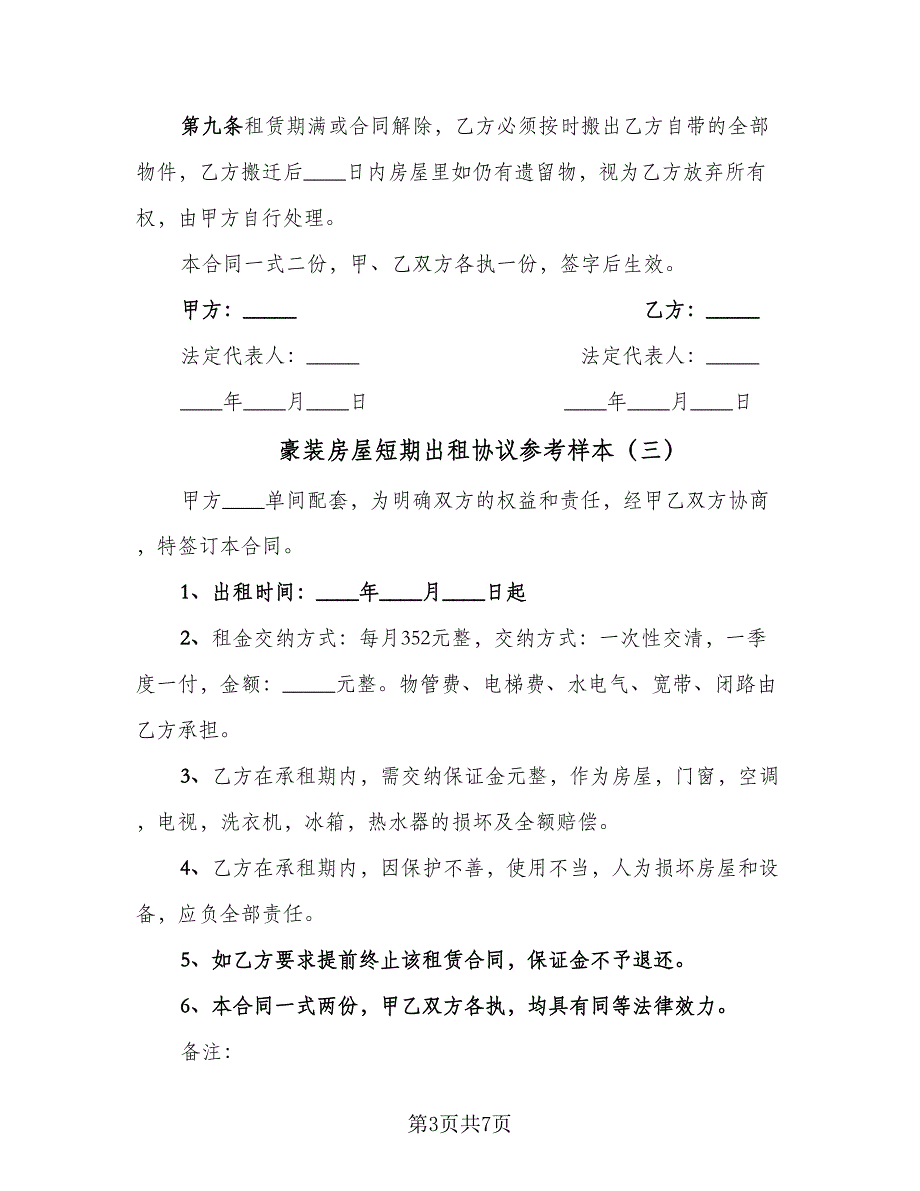 第九条租赁期满或合同解除，乙方必须按时搬出乙方自带的全部
物件，乙方搬迁后____日内房屋里如仍有遗留物，视为乙方放弃所有
权，由甲方自行处理。
本合同一式二份，甲、乙双方各执一份，签字后生效。
甲方：_____ 乙方：_____
法定代表人：_____ 法定代表人：_____
____年____月____日 ____年____月____日
豪装房屋短期出租协议参考样本（三）
甲方____单间配套，为明确双方的权益和责任，经甲乙双方协商
，特签订本合同。
1、出租时间：____年____月____日起
2、租金交纳方式：每月352元整，交纳方式：一次性交清，一季
度一付，金额：_____元整。物管费、电梯费、水电气、宽带、闭路由
乙方承担。
3、乙方在承租期内，需交纳保证金元整，作为房屋，门窗，空调
，电视，洗衣机，冰箱，热水器的损坏及全额赔偿。
4、乙方在承租期内，因保护不善，使用不当，人为损坏房屋和设
备，应负全部责任。
5、如乙方要求提前终止该租赁合同，保证金不予退还。
6、本合同一式两份，甲乙双方各执，均具有同等法律效力。
备注：
第3页共7页